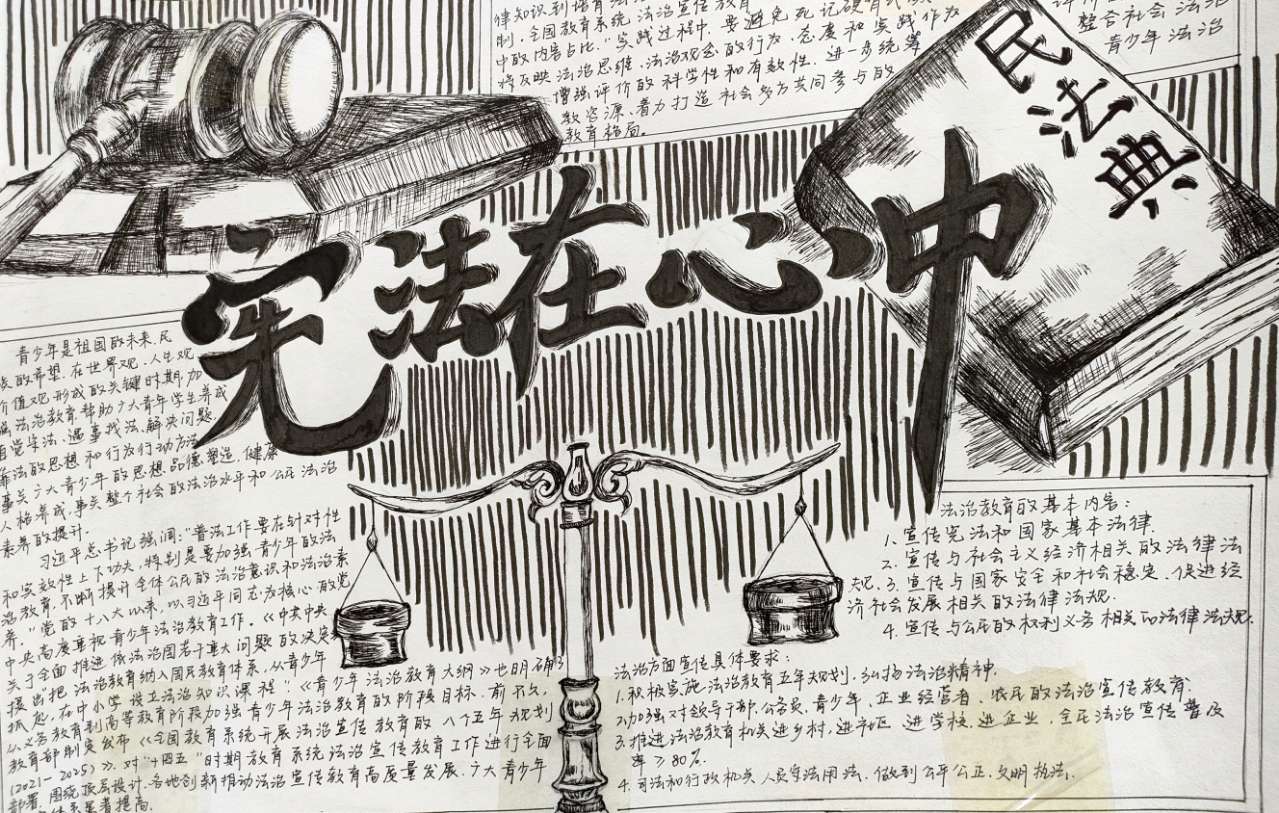 律知识到培育法治
制，全国教育系统法治宣传教育
中的内容占比。"实践过程中，要避免死记硬背式
将反映法治思维、法治观念的行为、态度和实践作为
增强评价的科学性和有效性。进一步统筹
教资源，着力打造社会多方共同参与的
教育格局。
整合社会法治
青少年法治
民法典
宪法在心中
青少年是祖国的未来、民
族的希望，在世界观、人生观
价值观形成的关键时期，加
强法治教育帮助广大青年学生养成
自觉守法、遇事找法、解决问题
靠法的思想和行为行动方法
事关广大青少年的思想品德塑造、健康
人格养成，事关整个社会的法治水平和公民法治
素养的提升。
习近平总书记强调："普法工作要在针对性
和实效性上下功夫，特别是要加强青少年的法
治教育，不断提升全体公民的法治意识和法治素
养。"党的十八大以来，以习近平同志为核心的党
中央高度重视青少年法治教育工作。《中共中央
关于全面推进依法治国若干重大问题的决定》
提出把法治教育纳入国民教育体系，从青少年
抓起，在中小学设立法治知识课程"：《青少年法治教育大纲》也明确了
从义务教育到高等教育阶段加强青少年法治教育的阶段目标。前不久，
教育部制定发布《全国教育系统开展法治宣传教育的八个五年规划
(2021-2025)》，对"十四五"时期教育系统法治宣传教育工作进行全面
部署，围绕顶层设计，各地创新推动法治宣传教育高质量发展，广大青少年
显著提高。
法治教育的基本内容：
1. 宣传宪法和国家基本法律.
2. 宣传与社会主义经济相关的法律法
规. 3. 宣传与国家安全和社会稳定、促进经
济社会发展相关的法律法规.
4. 宣传与公民的权利义务相关的法律法规.
法治方面宣传具体要求：
1. 积极实施法治教育五年规划，弘扬法治精神.
2. 加强对领导干部、公务员、青少年、企业经营者、农民的法治宣传教育.
3. 推进法治教育机关进乡村、进社区、进学校、进企业，全民法治宣传普及
率≥80%.
4. 司法和行政机关人员守法用法，做到公平公正、文明执法.